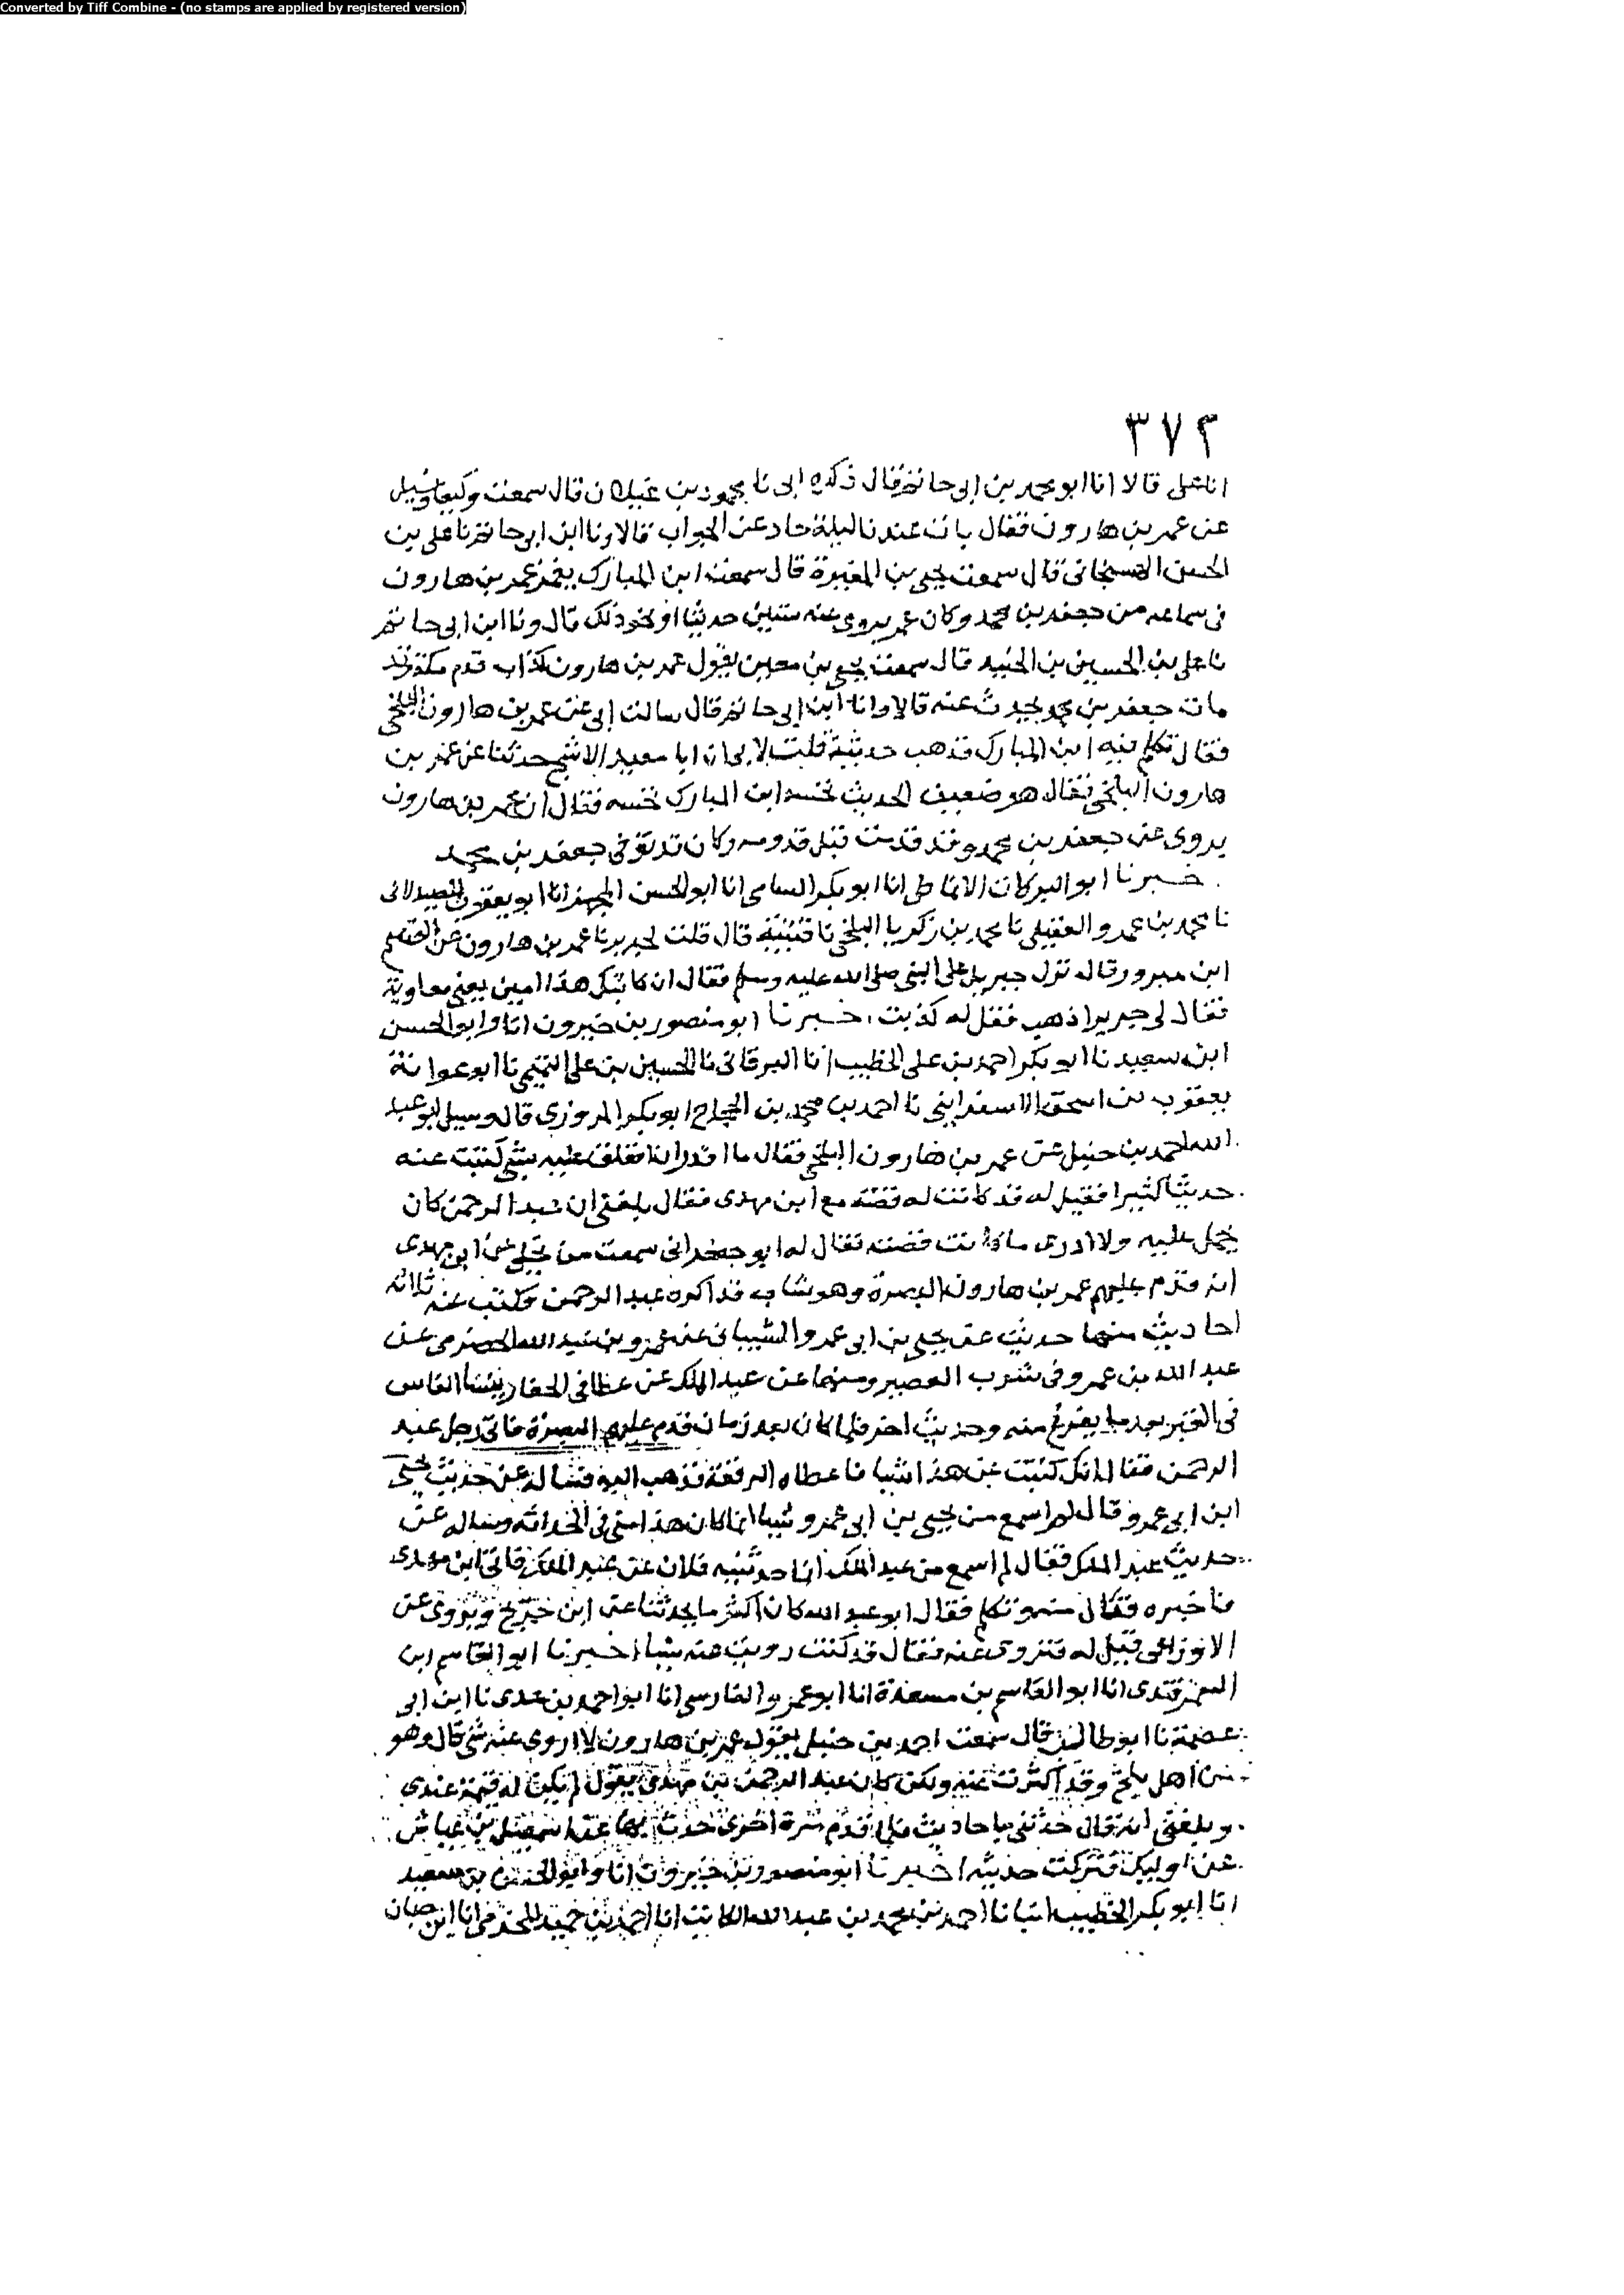 Converted by Tiff Combine - (no stamps are applied by registered version)
٣٧٢
انا علي قالا انا ابو محمد بن ابي حاتم قال ذكره ابي نا محمود بن غيلان قال سمعت وكيعا وسيل
عن عمر بن هارون فقال بات عندنا ليلة حاد عن الجواب قالا ونا ابن ابي حاتم نا علي بن
الحسن الهسنجاني قال سمعت يحيى بن المغيرة قال سمعت ابن المبارك يغمز عمر بن هارون
في سماعه من جعفر بن محمد وكان عمر يروي عنه ستين حديثا او نحو ذلك قال ونا ابن ابي حاتم
نا علي بن الحسين بن الجنيد قال سمعت يحيى بن معين يقول عمر بن هارون كذاب قدم مكة وقد
مات جعفر بن محمد يحدث عنه قالا وانا ابن ابي حاتم قال سالت ابي عن عمر بن هارون البلخي
فقال تكلم فيه ابن المبارك فذهب حديثه قلت لابي ان ابا سعيد الاشج حدثنا عن عمر بن
هارون البلخي فقال هو ضعيف الحديث نخسه ابن المبارك نخسه فقال ان عمر بن هارون
يروي عن جعفر بن محمد وقد قدمت قبل قدومه وكان قد توفي جعفر بن محمد
خبرنا ابو البركات الانماطي انا ابو بكر السامي انا ابو الحسن المجهز انا ابو يعقوب الصيدلاني
نا محمد بن عمرو العقيلي نا محمد بن زكريا البلخي نا قتيبة قال قلت لجرير نا عمر بن هارون عن القسم
ابن مبرور قال نزل جبريل على النبي صلى الله عليه وسلم فقال ان كاتبك هذا امين يعني معاوية
فقال لي جرير اذهب فقل له كذبت، خبرنا ابو منصور بن خيرون انا وابو الحسن
ابن سعيد نا ابو بكر احمد بن علي الخطيب انا البرقاني نا الحسين بن علي التميمي نا ابو عوانة
يعقوب بن اسحق الاسفرايني نا احمد بن محمد بن الحجاج ابو بكر المروزي قال وسيل ابو عبد
الله احمد بن حنبل عن عمر بن هارون البلخي فقال ما اقدر ان اتعلق عليه بشي كتبت عنه
حديثا كثيرا فقيل له قد كانت له قصة مع ابن مهدي فقال بلغني ان عبد الرحمن كان
يحمل عليه ولا ادري ما كانت قصته فقال له ابو جعفر اني سمعت من يحكي عن ابن مهدي
انه قدم عليهم عمر بن هارون البصرة وهو شاب فذاكره عبد الرحمن وكتب عنه ثلاثة
احاديث منها حديث عن يحيى بن ابي عمرو الشيباني عن عمرو بن عبد الله الحضرمي عن
عبد الله بن عمرو في شرب العصير ومنها عن عبد الملك عن عطا في الحفار ينسا الفاس
في القبر بعد ما يفرغ منه وحديث اخر فلما كان بعد زمان قدم عليهم البصرة فاتى رجل عبد
الرحمن فقال انك كتبت عن هذا شيا فاعطاه الرقعة فذهب اليه فساله عن حديث يحيى
ابن ابي عمرو قال لم اسمع من يحيى بن ابي عمرو شيا انما كان هذا مني في الحداثة وساله عن
حديث عبد الملك فقال لم اسمع من عبد الملك انما حدثنيه فلان عن عبد الملك فاتى ابن مهدي
فاخبره فقال منه وتكلم فقال ابو عبد الله كان اكثر ما يحدثنا عن ابن جريج ويروي عن
الاوزاعي قيل له فتروي عنه فقال قد كنت رويت عنه شيا اخبرنا ابو القاسم ابن
السمرقندي انا ابو القاسم بن مسعدة انا ابو عمرو الفارسي انا ابو احمد بن عدي نا ابن ابي
عصمة نا ابو طالب قال سمعت احمد بن حنبل يقول عمر بن هارون لا اروي عنه شي قال وهو
من اهل بلخ وقد اكثرت عنه ولكن كان عبد الرحمن بن مهدي يقول لم يكن له قيمة عندي
وبلغني انه قال حدثني باحاديث فلما قدم مرة اخرى حدث بها عن اسمعيل بن عياش
عن اوليك فتركت حديثه اخبرنا ابو منصور بن خيرون انا وابو الحسن بن سعيد
انا ابو بكر الخطيب انبانا احمد بن محمد بن عبد الله الكاتب انا احمد بن حميد المخرمي انا ابن حبان